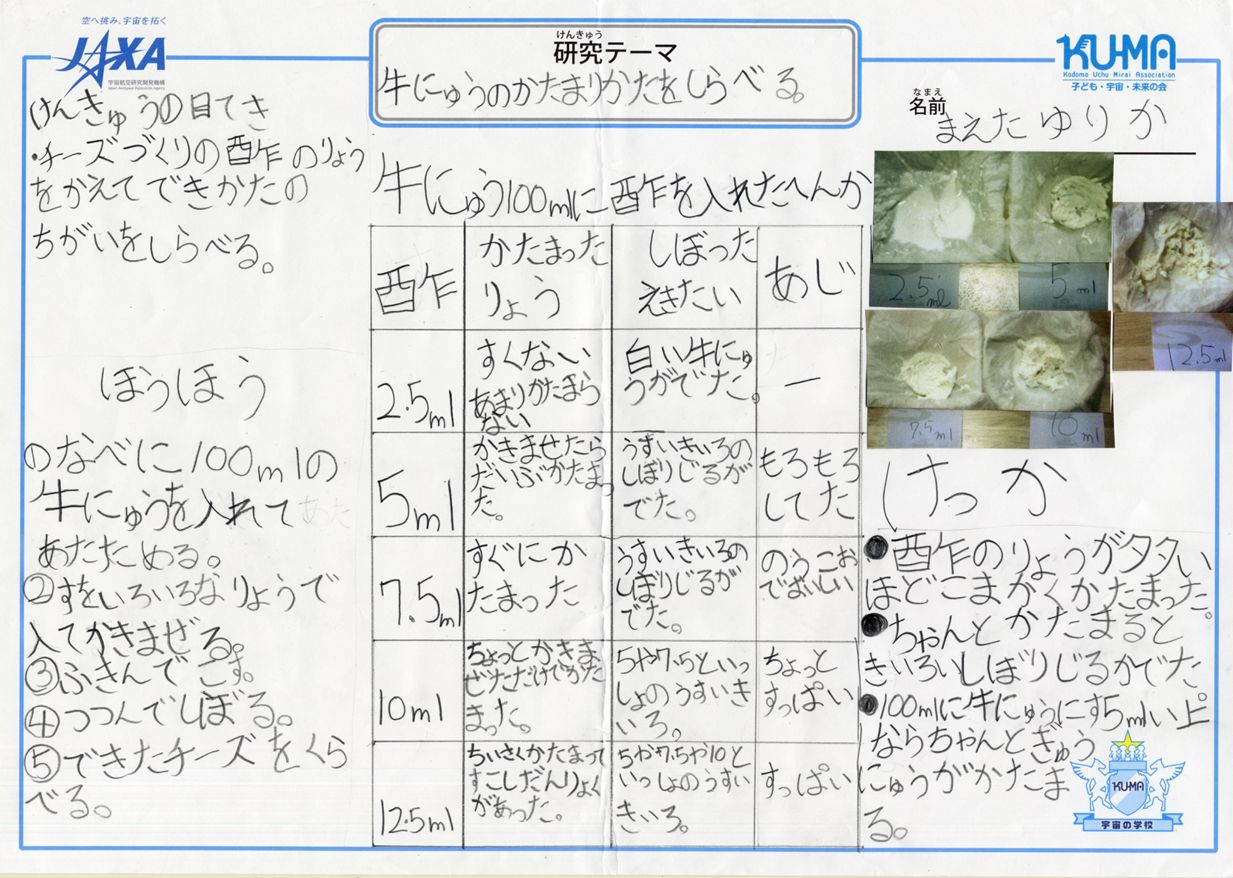 空へ挑み、宇宙を拓く
JAXA
宇宙航空研究開発機構
Japan Aerospace Exploration Agency
けんきゅう
研究テーマ
牛にゅうのかたまりかたをしらべる。
KU-MA
Kodomo Uchu Mirai Association
子ども・宇宙・未来の会
なまえ
名前
まえた ゆりか
けんきゅうの目てき
・チーズづくりの酢のりょう
をかえてできかたの
ちがいをしらべる。
ほうほう
のなべに100mlの
牛にゅうを入れて
あたためる。
②すをいろいろなりょうで
入てかきまぜる。
③ふきんでこす。
④つつんでしぼる。
⑤できたチーズをくら
べる。
牛にゅう100mlに酢を入れたへんか
酢
かたまった
りょう
しぼった
えきたい
あじ
2.5ml
すくない
あまりかたまら
ない
白い牛にゅ
うがでた。
ー
5ml
かきませたら
だいぶかたまっ
た。
うすいきいろの
しぼりじるが
でた。
もろもろ
してた
7.5ml
すぐにか
たまった
うすいきいろの
しぼりじるが
でた。
のうこお
でおいしい
10ml
ちょっとかきま
ぜただけでかた
まった。
5や7.5といっ
しょのうすいき
いろ。
ちょっと
すっぱい
12.5ml
ちいさくかたまって
すこしだんりょく
があった。
5や7.5や10と
いっしょのうすい
きいろ。
すっぱい
2.5ml
5ml
12.5ml
7.5ml
10ml
けっか
●酢のりょうが多い
ほどこまかくかたまった。
●ちゃんとかたまると
きいろいしぼりじるがでた。
●100mlに牛にゅうにす5mlい上
ならちゃんとぎゅう
にゅうがかたま
る。
KU-MA
宇宙の学校